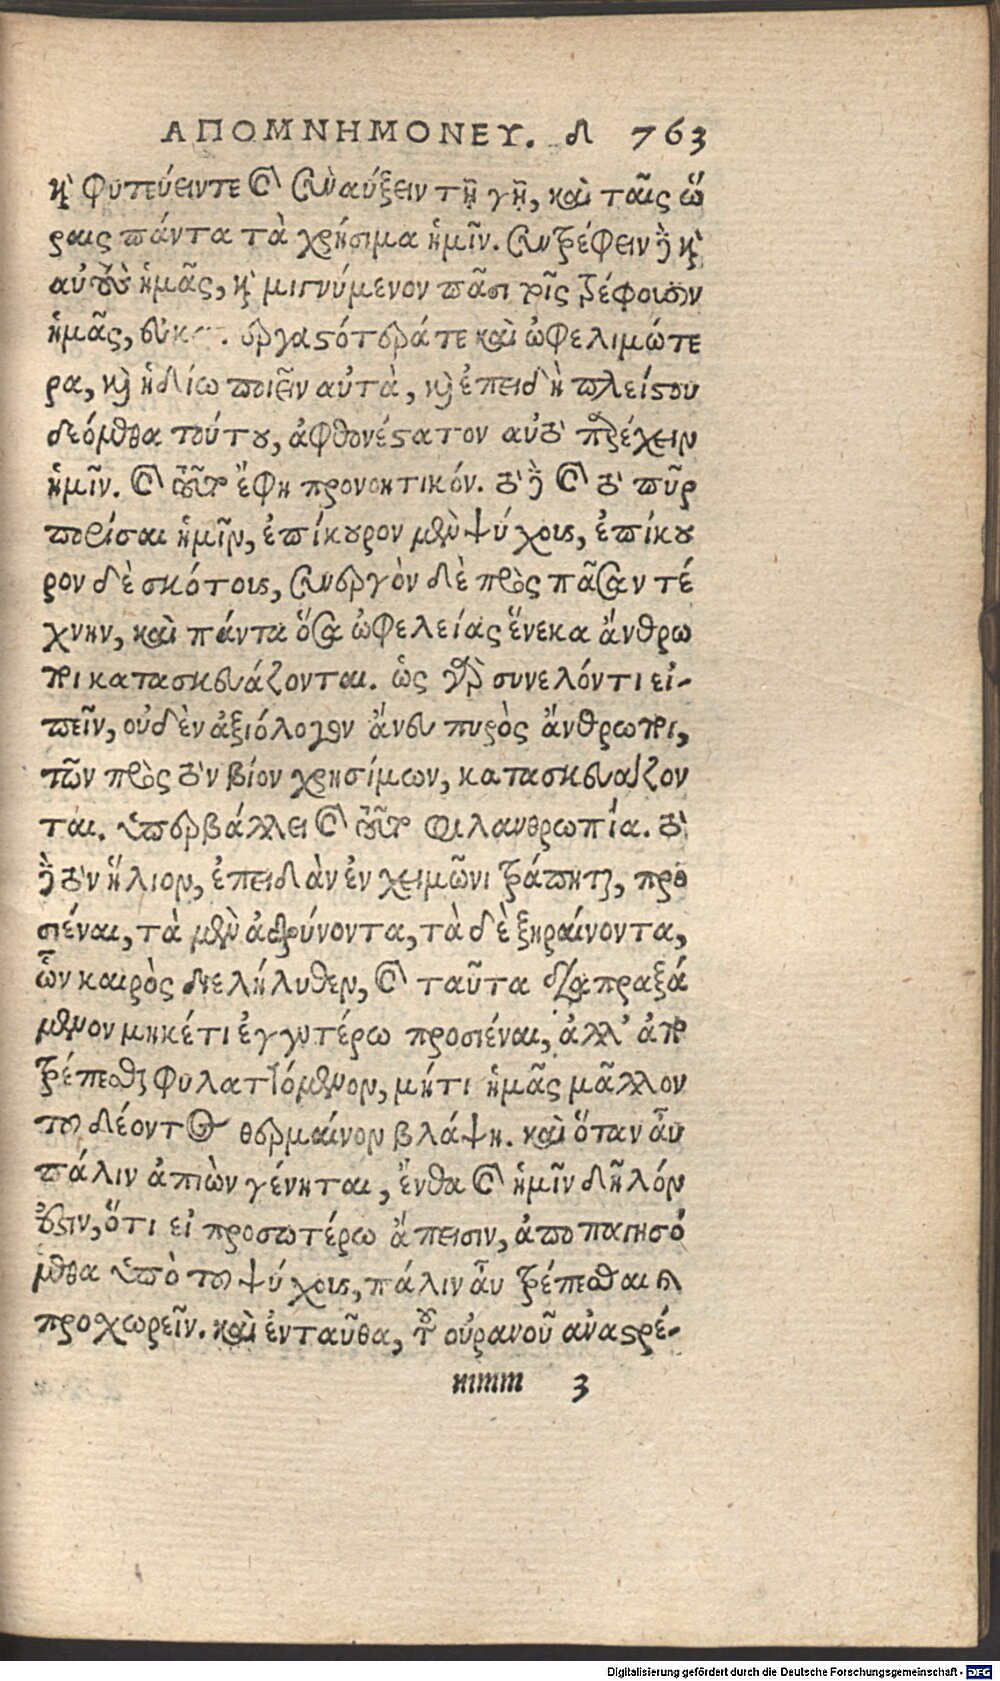 ΑΠΟΜΝΗΜΟΝΕΥ. δ 763
καὶ φυτεύειντε καὶ συναύξειν τῇ γῇ, καὶ ταῖς ὥ
ραις πάντα τὰ χρήσιμα ἡμῖν. συντρέφειν δὲ καὶ
αὐτοὺς ἡμᾶς, καὶ μιγνύμενον πᾶσι τοῖς τρέφουσιν
ἡμᾶς, εὐκ . εργαστότεράτε καὶ ὠφελιμώτε
ρα, καὶ ἡδίω ποιεῖν αὐτὰ, καὶ ἐπειδὴ πλείστου
δεόμεθα τούτου, ἀφθονέστατον αὐτὸ παρέχειν
ἡμῖν. καὶ τοῦτ ἔφη προνοητικόν. τὸ δὲ καὶ τὸ πῦρ
πορίσαι ἡμῖν, ἐπίκουρον μὲν ψύχους, ἐπίκου
ρον δὲ σκότους, συνεργὸν δὲ πρὸς πᾶσαν τέ
χνην, καὶ πάντα ὅσα ὠφελείας ἕνεκα ἄνθρω
ποι κατασκευάζονται. ὡς γὰρ συνελόντι εἰ-
πεῖν, οὐδὲν ἀξιόλογον ἄνευ πυρὸς ἄνθρωποι,
τῶν πρὸς τὸν βίον χρησίμων, κατασκευάζον
ται. ὑπερβάλλει καὶ τοῦτ φιλανθρωπία. τὸ
δὲ τὸν ἥλιον, ἐπειδὰν ἐν χειμῶνι τράπηται, προ
σιέναι, τὰ μὲν ἁδρύνοντα, τὰ δὲ ξηραίνοντα,
ὧν καιρὸς διελήλυθεν, καὶ ταῦτα διαπραξά
μενον μηκέτι ἐγγυτέρω προσιέναι, ἀλλ' ἀπο
τρέπεσθαι φυλαττόμενον, μήτι ἡμᾶς μᾶλλον
τοῦ δέοντος θερμαίνον βλάψη. καὶ ὅταν αὖ
πάλιν ἀπιὼν γένηται, ἔνθα καὶ ἡμῖν δῆλόν
ἐστιν, ὅτι εἰ προσωτέρω ἄπεισιν, ἀποπαγησό
μεθα ὑπὸ τοῦ ψύχους, πάλιν αὖ τρέπεσθαι καὶ
προχωρεῖν. καὶ ἐνταῦθα, τοῦ οὐρανοῦ ἀναστρέ-
mmm 3
Digitalisierung gefördert durch die Deutsche Forschungsgemeinschaft - DFG